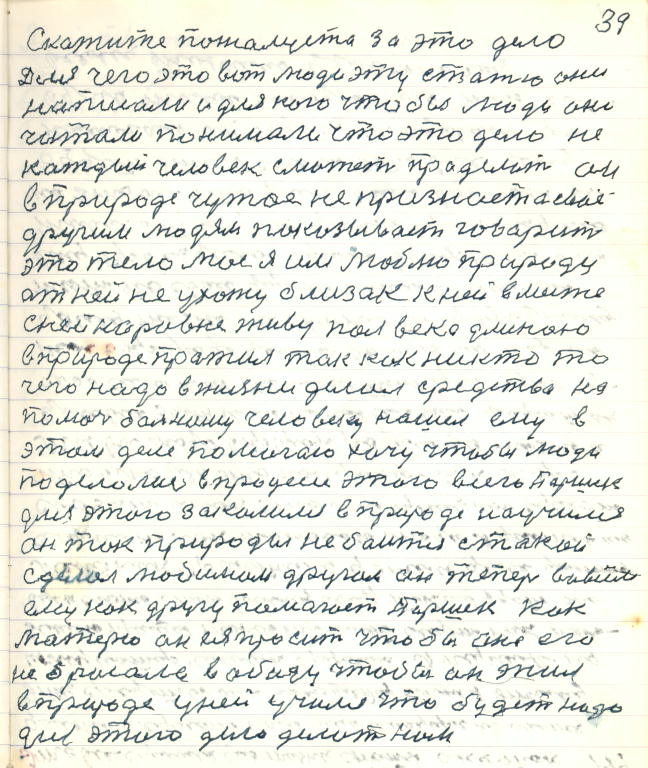 39
Скажите пожалуста за это дело
Для чего это вот люди эту статью они
написали и для кого чтобы люди они
читали понимали что это дело не
каждый человек сможет праделат он
в природе чужое не признает а свае
другим людям показывает говарит
это тело мое я им люблю природу
от ней не ухожу близак к ней вместе
с ней наровне живу пол века длиною
в природе пражил так как никто то
чего надо в жизни делал средства на
помоч болному человеку нашел ему в
этом деле помогаю хочу чтобы люди
поделалис в процесе этого всего Паршек
для этого закалился в природе научился
он так природы не баится с такой
сделал любимом другом он тепер
ему как другу помагает Паршек как
матерю он ея просит чтобы она его
не бросала в обиду чтобы он жил
в природе у ней учился что будет надо
для этого дела делат нам